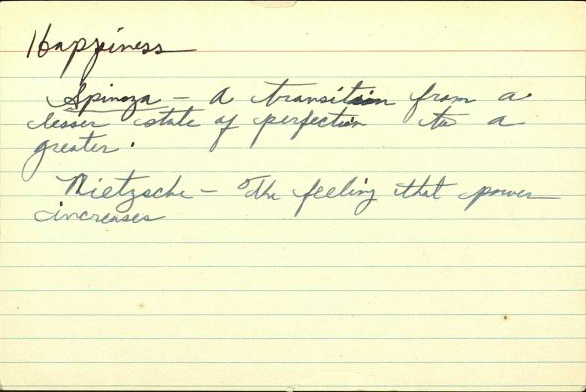 Happiness
Spinoza - A transition from a
lesser state of perfection to a
greater.
Nietzsche - The feeling that power
increases